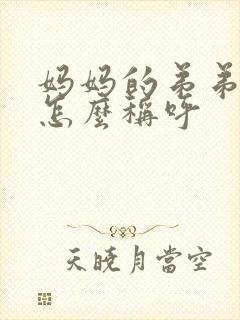 妈妈的弟弟
怎麼稱呼
天曉月當空